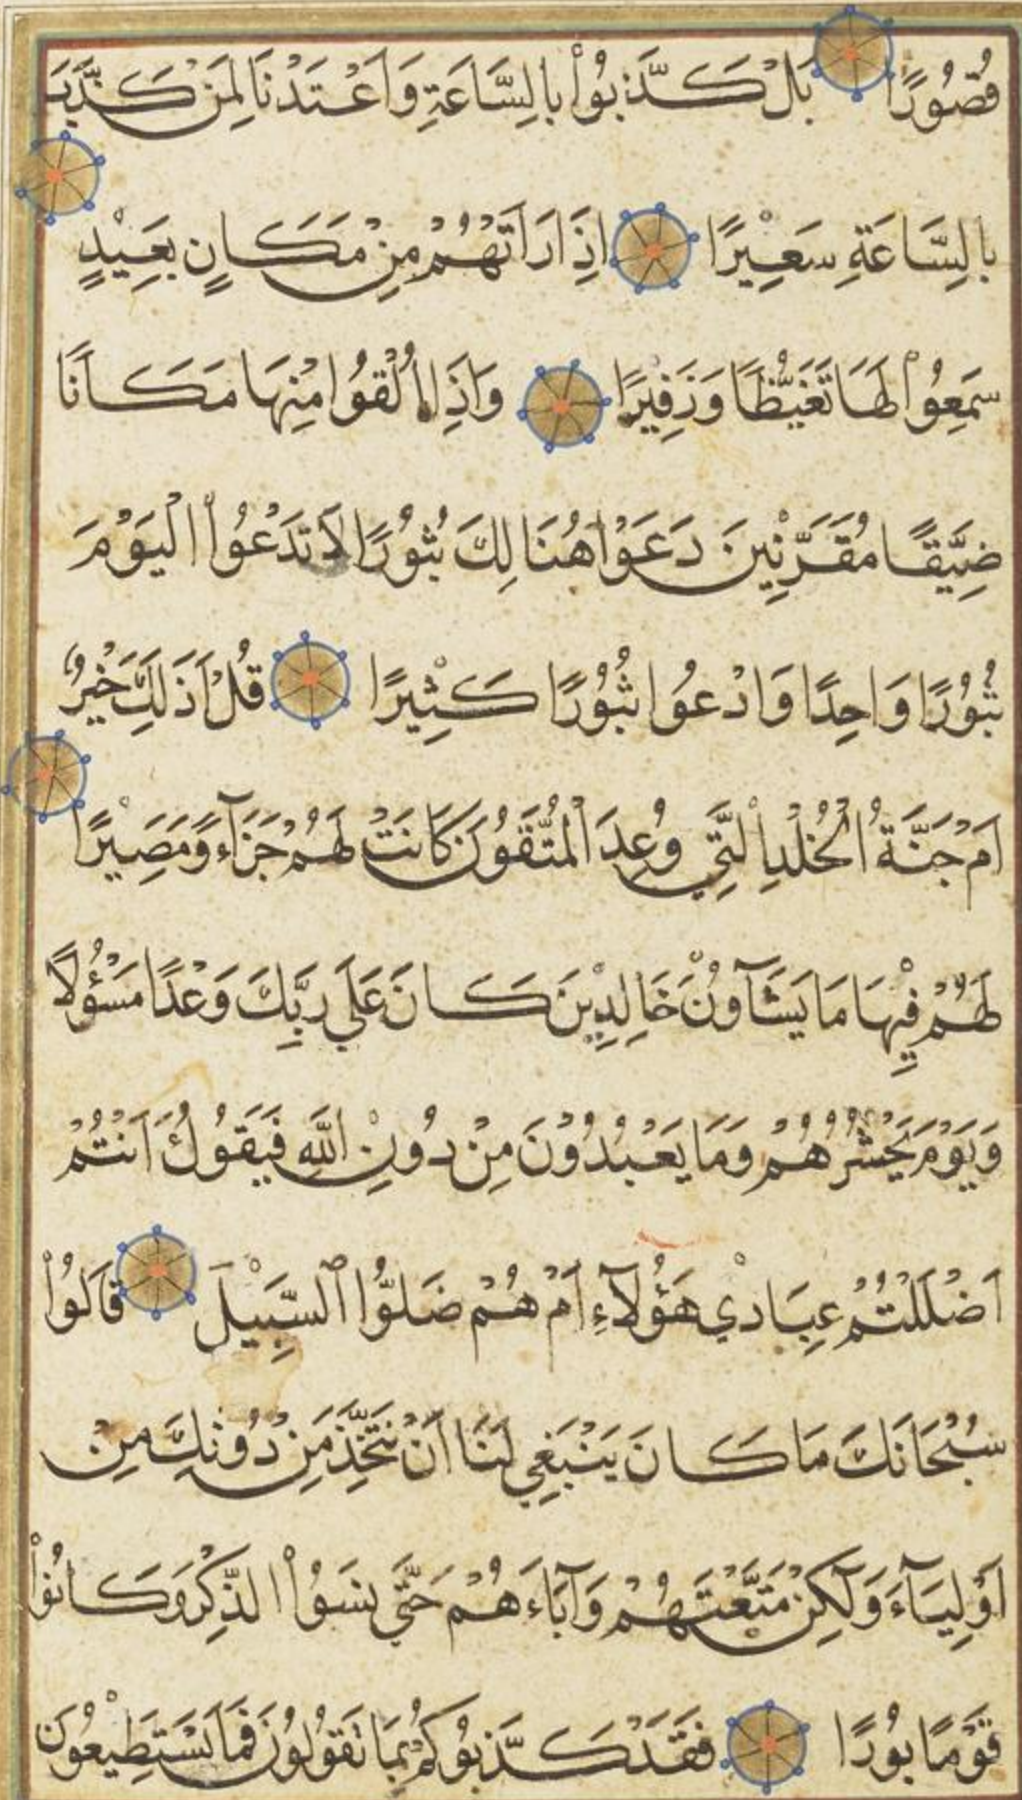 قُصُورًا بَلْ كَذَّبُوْا بِالسَّاعَةِ وَاَعْتَدْنَا لِمَنْ كَذَّبَ
بِالسَّاعَةِ سَعِيْرًا اِذَا رَاَتْهُمْ مِنْ مَكَانٍ بَعِيْدٍ
سَمِعُوْا لَهَا تَغَيُّظًا وَزَفِيْرًا وَاِذَا اُلْقُوْا مِنْهَا مَكَانًا
ضَيِّقًا مُقَرَّنِيْنَ دَعَوْا هُنَالِكَ ثُبُوْرًا لَا تَدْعُوْا الْيَوْمَ
ثُبُوْرًا وَاحِدًا وَادْعُوا ثُبُوْرًا كَثِيْرًا قُلْ اَذَلِكَ خَيْرٌ
اَمْ جَنَّةُ الْخُلْدِ الَّتِي وُعِدَ الْمُتَّقُوْنَ كَانَتْ لَهُمْ جَزَآءً وَمَصِيْرًا
لَهُمْ فِيْهَا مَا يَشَآوُنَ خَالِدِيْنَ كَانَ عَلَى رَبِّكَ وَعْدًا مَسْؤُلًا
وَيَوْمَ يَحْشُرُهُمْ وَمَا يَعْبُدُوْنَ مِنْ دُوْنِ اللَّهِ فَيَقُوْلُ اَنْتُمْ
اَضْلَلْتُمْ عِبَادِيْ هَؤُلَآءِ اَمْ هُمْ ضَلُّوْا السَّبِيْلَ قَالُوْا
سُبْحَانَكَ مَا كَانَ يَنْبَغِي لَنَا اَنْ نَتَّخِذَ مِنْ دُوْنِكَ مِنْ
اَوْلِيَآءَ وَلَكِنْ مَتَّعْتَهُمْ وَآبَاءَهُمْ حَتَّى نَسُوْا الذِّكْرَ وَكَانُوْا
قَوْمًا بُوْرًا فَقَدْ كَذَّبُوْكُمْ بِمَا تَقُوْلُوْنَ فَمَا تَسْتَطِيْعُوْنَ